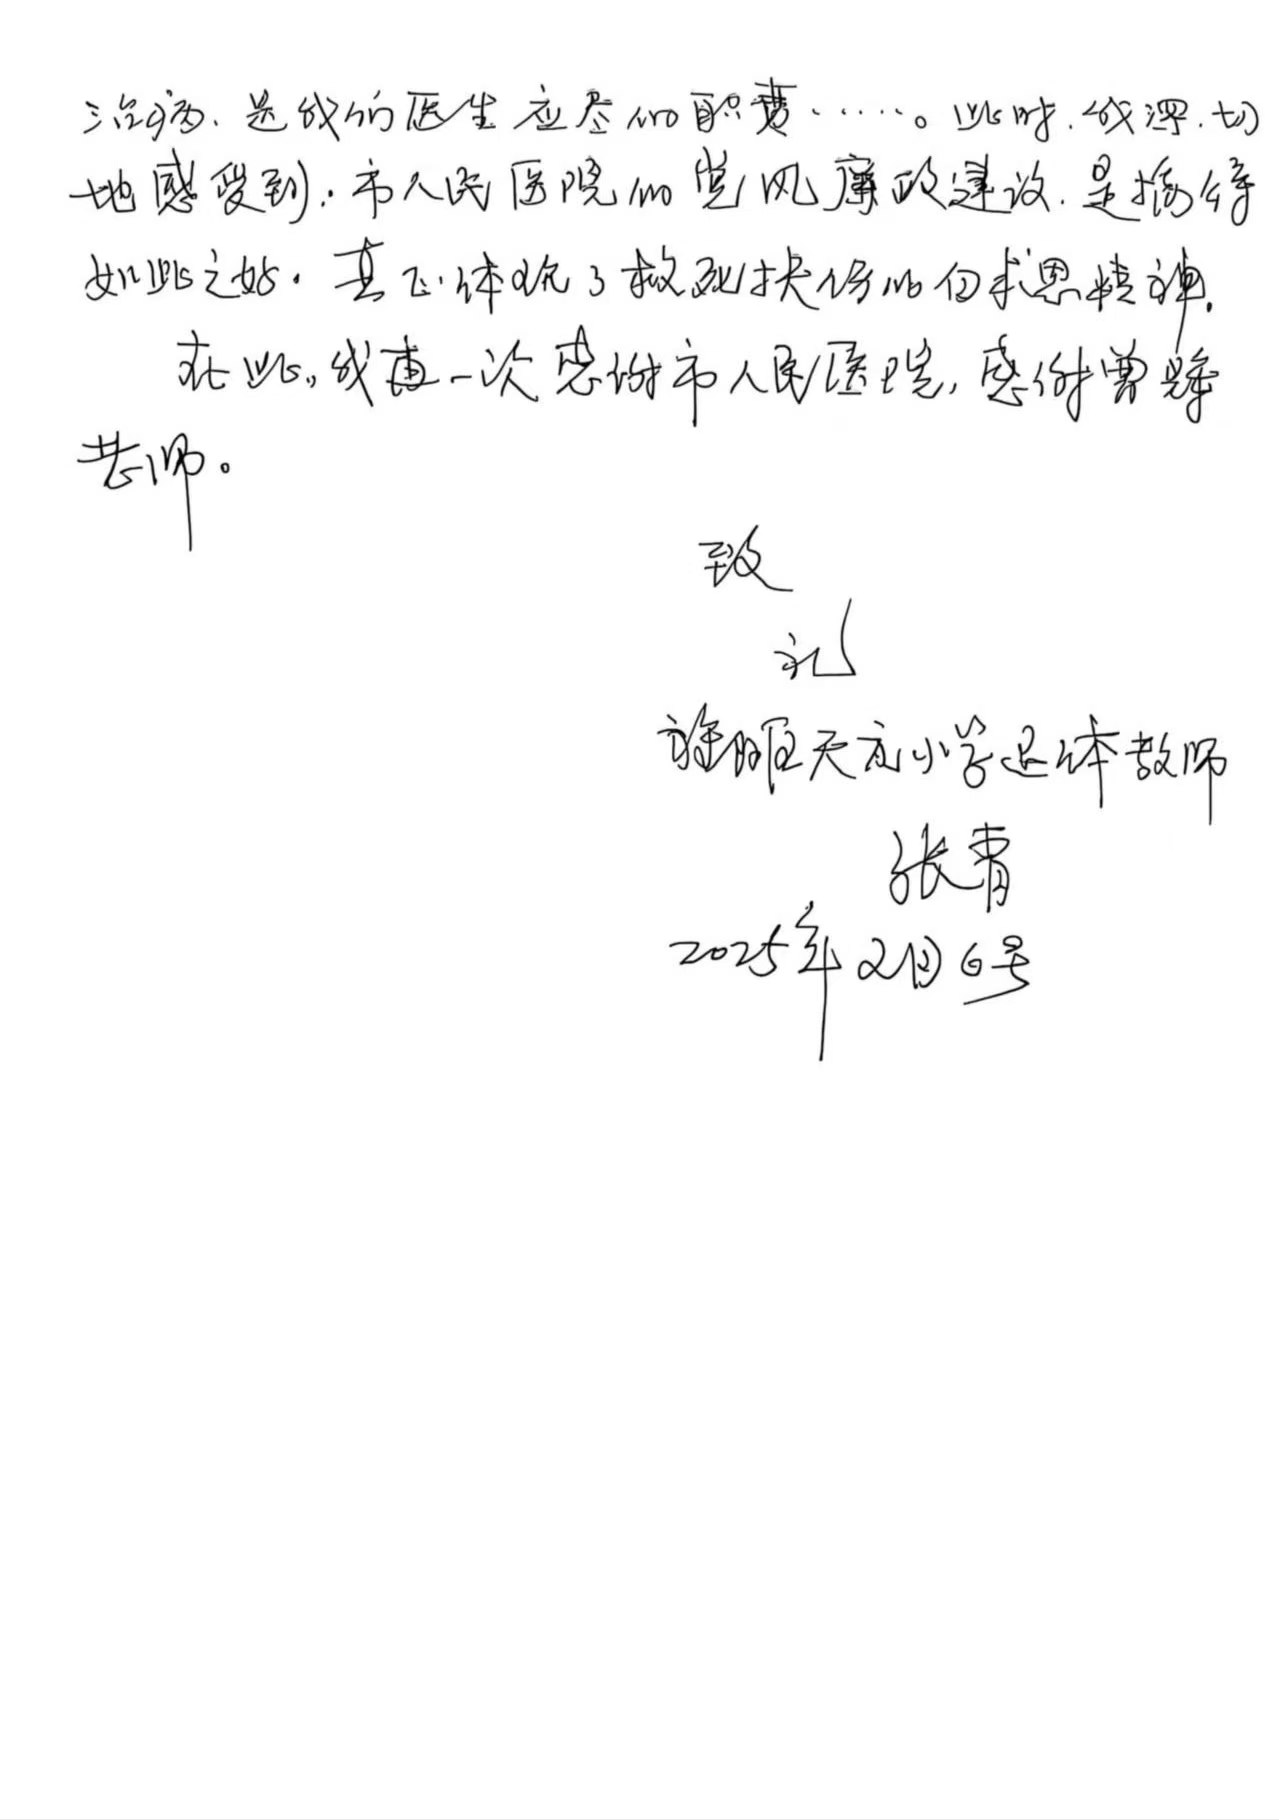 治病、是我们医生应尽的职责……。此时、我深切
地感受到：市人民医院的党风廉政建设、是搞得
如此之好。真正体现了救死扶伤的白求恩精神。
在此，我再一次感谢市人民医院，感谢曾
老师。
致
礼
天立小学退休教师
张青
2025年2月6号